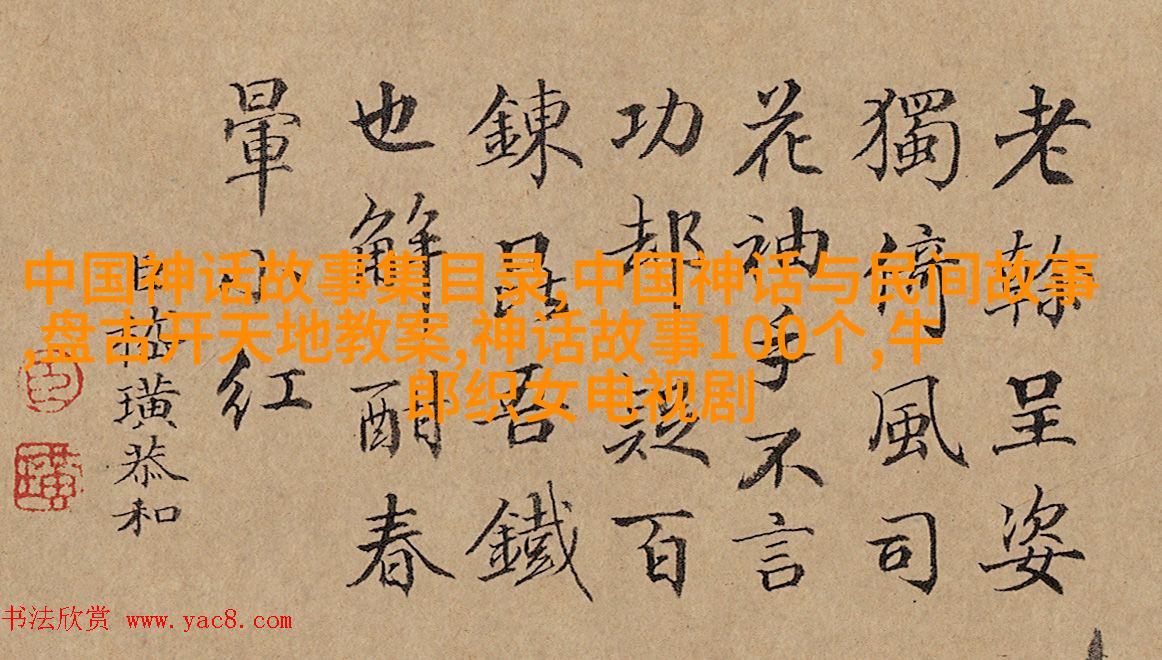 老榦呈姿
獨倚風司
花神手不言
功都疑百
鍊昆吾鐵
也解酣春
暈小紅
臣嵇璜恭和
臣
璜
中国神话故事集目录,中国神话与民间故事
,盘古开天地教案,神话故事100个,牛
郎织女电视剧
书法欣赏 www.yac8.com